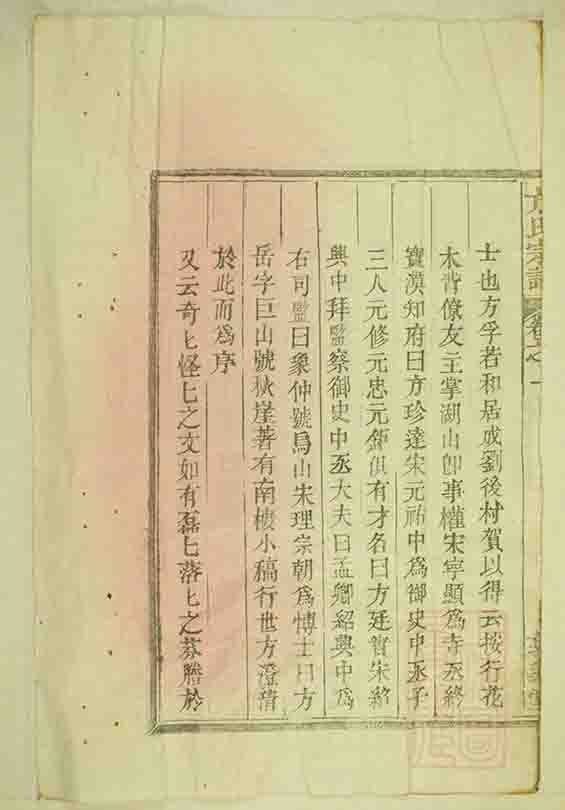 氏宗譜 卷之一
士也方孚若和居戎劉後村賀以得云按行花
木皆僚友主掌湖山卽事權宋寧顯爲寺丞終
寶漠知府曰方珍達宋元祐中爲御史中丞子
三人元修元忠元鉅俱有才名曰方廷實朱紹
興中拜監察御史中丞大夫曰孟卿紹興中爲
右司監曰象仲號烏山宋理宗朝爲博士曰方
岳字巨山號秋崖著有南樓小稿行世方澄清
於此而爲序
又云奇匕怪匕之文如有磊匕落匕之芬謄於